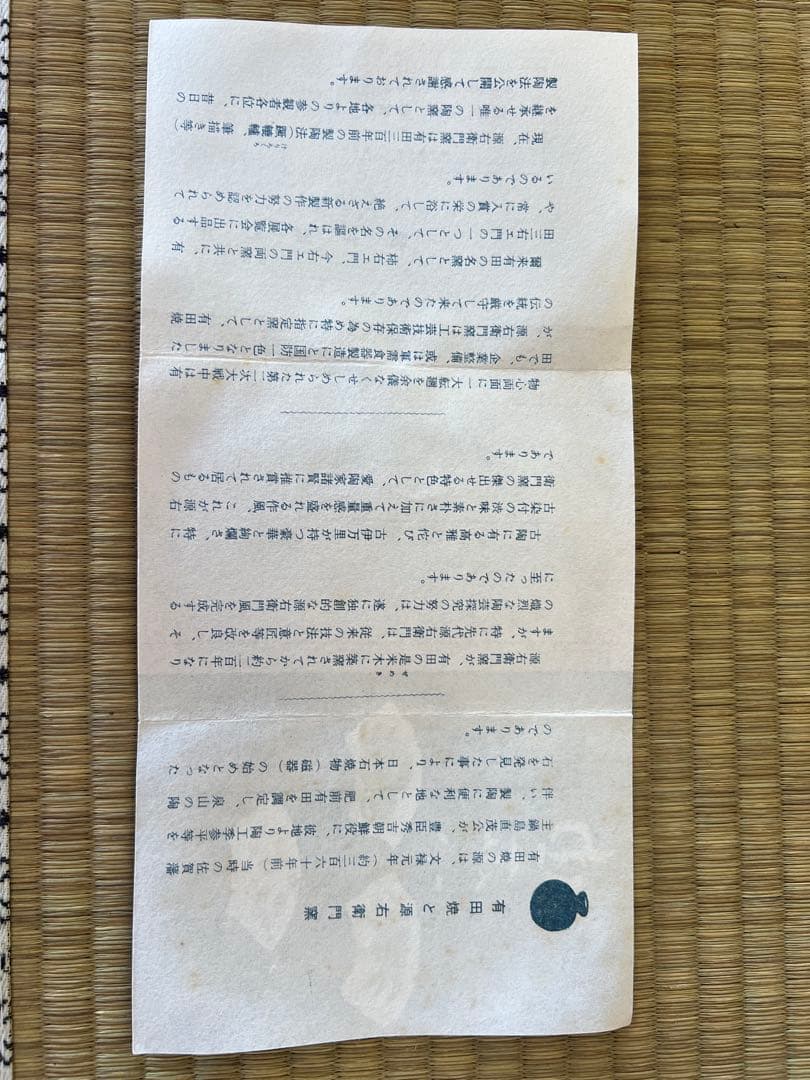 有田焼と源右衛門窯
有田焼の源は、文禄元年(約三百六十年前)当時の佐賀藩
主鍋島直茂公が、豊臣秀吉朝鮮役に、彼地より陶工李参平等を
伴い、製陶に便利な地として、肥前有田を調定し、泉山の陶
石を発見した事により、日本石焼物(磁器)の始めとなった
のであります。
ぜめき
源右衛門窯が、有田の是米木に築窯されてから約二百年になり
ますが、特に先代源右衛門は、従来の技法と意匠等を改良し、そ
の熾烈な陶芸探究の努力は、遂に独創的な源右衛門風を完成する
に至ったのであります。
古陶に有る高雅と侘び、古伊万里が持つ豪華と絢爛さ、特に
古染付の渋味と素朴さに加えて重量感を盛れる作風、これが源右
衛門窯の傑出せる特色として、愛陶家諸賢に推賞されて居るもの
であります。
物心両面に一大転遡を余儀なくせしめられた第二次大戦中は有
田でも、企業整備、或は軍需食器製造にと国防一色となりました
が、源右衛門窯は工芸技術保存の為め特に指定窯として、有田焼
の伝統を厳守して来たのであります。
爾来有田の名窯として、柿右エ門、今右エ門の両窯と共に、有
田三右エ門の一つとして、その名を謳はれ、各展覧会に出品する
や、常に入賞の栄に浴して、絶えざる新製作の努力を認められて
いるのであります。
けりろくろ
現在、源右衛門窯は有田三百年前の製陶法(蹴轆轤、筆描き等)
を継承せる唯一の陶窯として、各地よりの参観者各位に、昔日の
製陶法を公開して感謝されております。